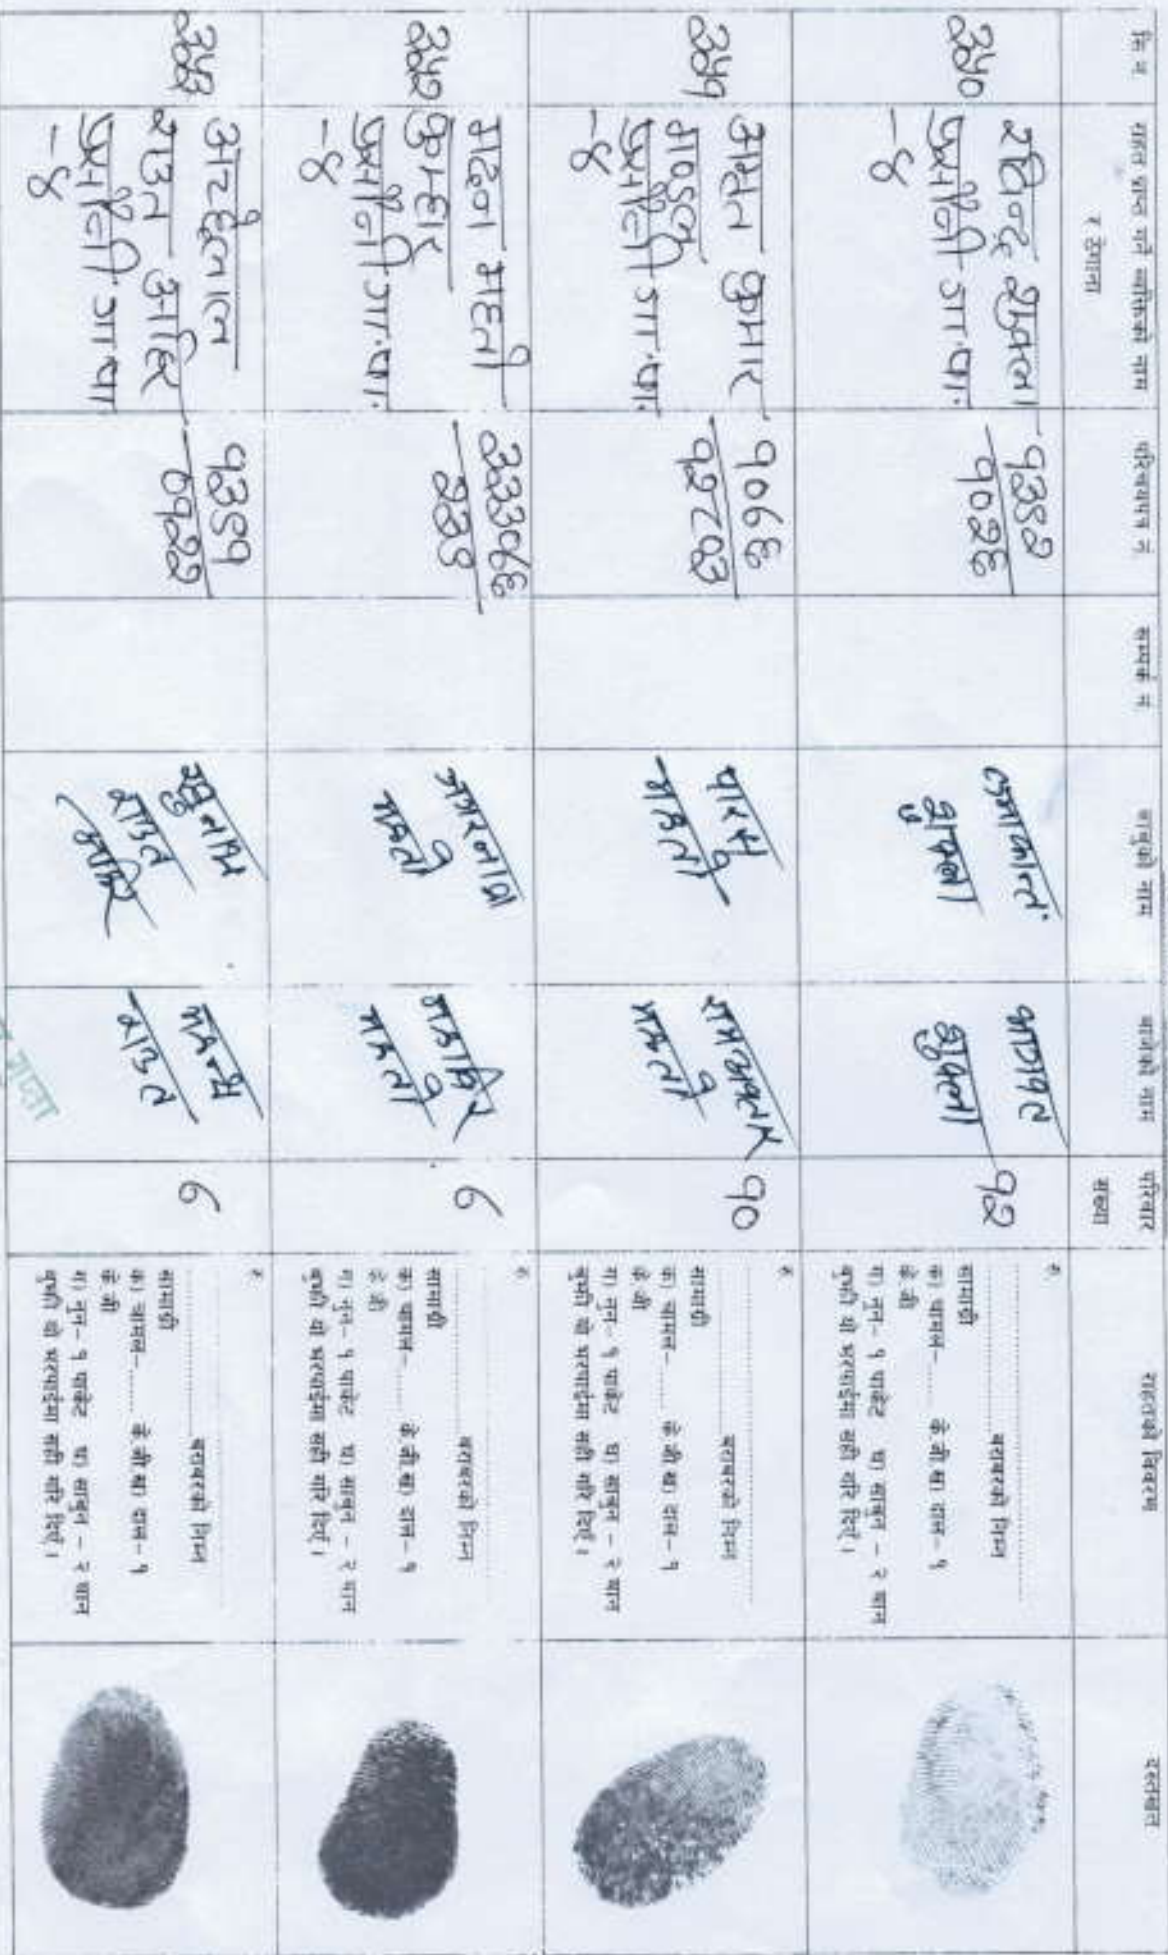 सि.नं.
राहत प्राप्त गर्ने व्यक्तिको नाम
र ठेगाना
परिचयपत्र नं.
सम्पर्क नं.
बाबुको नाम
बाजेको नाम
परिवार
संख्या
राहतको विवरण
दस्तखत
३५०
रविन्द्र शुक्ला
प्रसौनी गा.पा.
-४
१३९२
१०२६
शुक्ला
शुक्ला
१२
रु.
बराबरको निम्न
सामाग्री
क) चामल-...... के.जी ख) दाल- १
के.जी
ग) नुन- १ पाकेट घ) साबुन - २ थान
बुझी यो भरपाईमा सही गरि दिएं ।
३५१
कुमार
मण्डल
प्रसौनी गा.पा.
-४
१०७६
१२८७३
पारस
महतो
महतो
१०
रु.
बराबरको निम्न
सामाग्री
क) चामल-...... के.जी ख) दाल- १
के.जी
ग) नुन- १ पाकेट घ) साबुन - २ थान
बुझी यो भरपाईमा सही गरि दिएं ।
३५२
महतो
कुम्हार
प्रसौनी गा.पा.
-४
३३३०७६
२३९
अमरनाथ
महतो
महाविर
महतो
७
रु.
बराबरको निम्न
सामाग्री
क) चामल-...... के.जी ख) दाल- १
के.जी
ग) नुन- १ पाकेट घ) साबुन - २ थान
बुझी यो भरपाईमा सही गरि दिएं ।
३५३
राउत अहिर
प्रसौनी गा.पा
-४
१३९१
७१२२
राउत
अहिर
राउत
७
रु.
बराबरको निम्न
सामाग्री
क) चामल-...... के.जी ख) दाल- १
के.जी
ग) नुन- १ पाकेट घ) साबुन - २ थान
बुझी यो भरपाईमा सही गरि दिएं ।